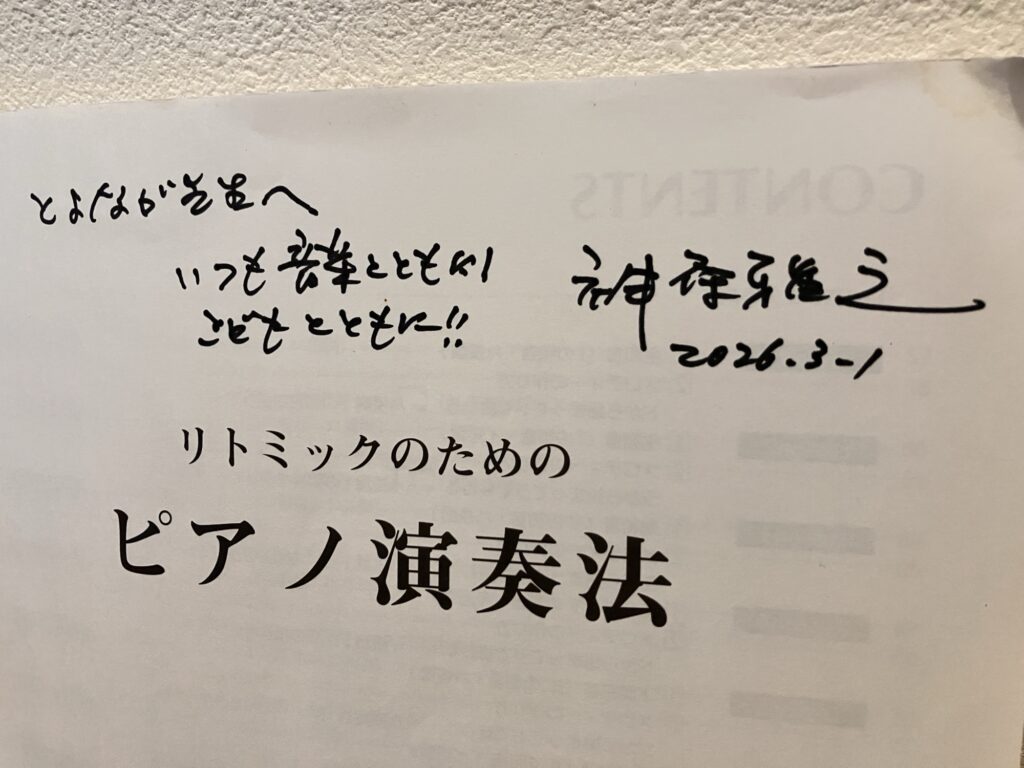 とよながが先生へ
いつも音楽とともに
こどもとともに!!
神原雅之
2026.3-1
リトミックのための
ピアノ演奏法
CONTENTS